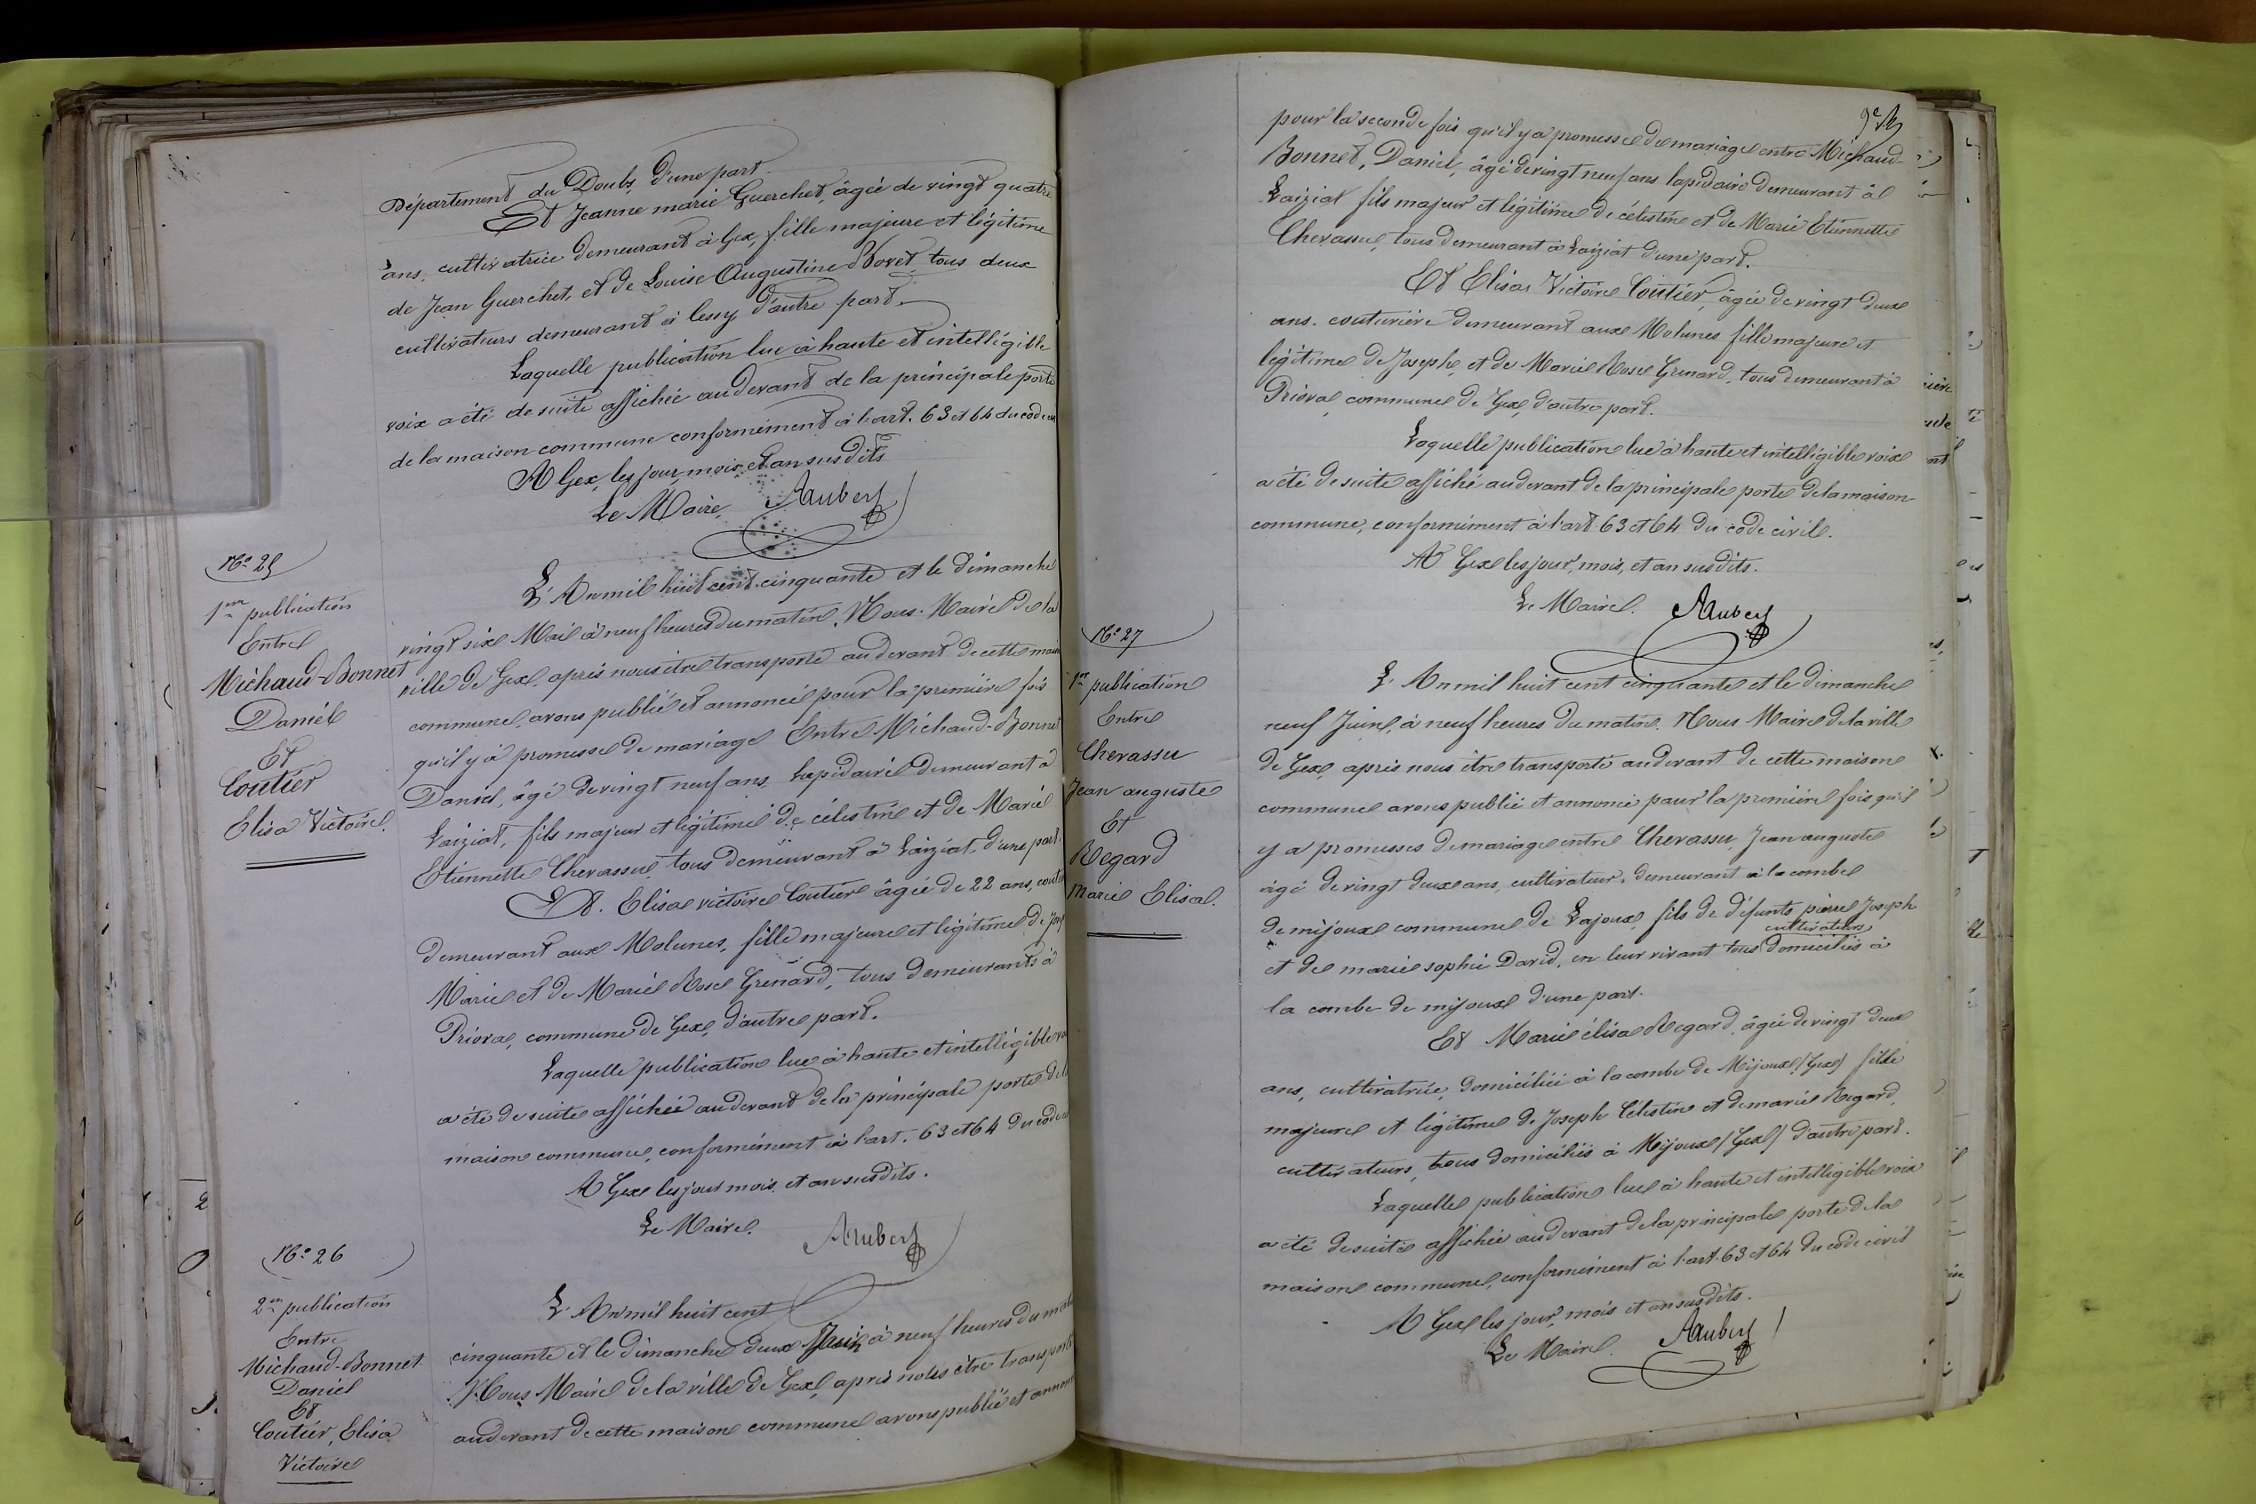 Département du Doubs, d'une part.
Et Jeanne marie Guerchet, âgée de vingt quatre
ans, cultivatrice demeurant à Gex, fille majeure et légitime
de Jean Guerchet, et de Louise Augustine tous deux
cultivateurs demeurant à Cessy d'autre part.
Laquelle publication lue à haute et intelligible
voix a été de suite affichée audevant de la principale porte
de la maison commune conformément à l'art. 63 et 64 du code
A Gex, les jour, mois et an susdits
Le Maire, Aubert
No 25
1re publication
Entre
Michaud-Bonnet
Daniel
Et
Coutier
Elisa Victoire.
L'An mil huit cent cinquante et le dimanche
vingt six Mai à neuf heures du matin, Nous Maire de la
ville de Gex, après nous être transporté audevant de cette maison
commune, avons publié et annoncé pour la première fois
qu'il y a promesse de mariage Entre Michaud-Bonnet
Daniel, âgé de vingt neuf ans, lapidaire demeurant à
Laiziat, fils majeur et légitime de célestin et de Marie
Etiennette Chevassu tous demeurant à Laiziat, d'une part.
Et. Elisa victoire Coutier âgée de 22 ans,
demeurant aux Molunes, fille majeure et légitime de
Marie et de Marie Rose Grenard, tous demeurants à
Prioval, commune de Gex, d'autre part.
Laquelle publication lue à haute et intelligible
a été de suite affichée audevant de la principale porte de
maison commune, conformément à l'art. 63 et 64 du code
A Gex les jour mois et an susdits.
Le Maire. Aubert
No 26
2me publication
Entre
Michaud-Bonnet
Daniel
Et
Coutier, Elisa
Victoire
L'An mil huit cent
cinquante et le dimanche deux Juin à neuf heures du
Nous Maire de la ville de Gex, après nous être transporté
audevant de cette maison commune avons publié et
pour la seconde fois qu'il y a promesse de mariage entre Michaud-
Bonnet, Daniel, âgé de vingt neuf ans lapidaire demeurant à
Laiziat fils majeur et légitime de célestin et de Marie Etiennette
Chevassu, tous demeurant à Laiziat d'une part.
Et Elisa Victoire Coutier, âgée de vingt deux
ans. couturière demeurant aux Molunes fille majeure et
légitime de Joseph, et de Marie Rose Grenard, tous demeurant à
Prioval, commune de Gex, d'autre part.
Laquelle publication lue à haute et intelligible voix
a été de suite affiché audevant de la principale porte de la maison
commune, conformément à l'art 63 et 64 du code civile.
A Gex les jour, mois, et an susdits.
Le Maire. Aubert
No 27
1re publication
Entre
Chevassu
Jean auguste
Et
Regard
Marie Elisa.
L'An mil huit cent cinquante et le dimanche
neuf Juin, à neuf heures du matin. Nous Maire de la ville
de Gex, après nous être transporté audevant de cette maison
commune avons publié et annoncé pour la première fois qu'il
y a promesses de mariage entre Chevassu Jean auguste
âgé de vingt deux ans, cultivateur, demeurant à la combe
de mijoux commune de Lajoux, fils de défunts pierre Joseph
et de marie sophie David, en leur vivant tous cultivateurs domiciliés à
la combe de mijoux d'une part.
Et Marie élisa Regard, âgée de vingt deux
ans, cultivatrice, domiciliée à la combe de Mijoux, (Gex) fille
majeure et légitime de Joseph Célestin et de marie Regard,
cultivateurs, tous domiciliés à Mijoux (Gex) d'autre part.
Laquelle publication lue à haute et intelligible voix
a été de suite affichée audevant de la principale porte de la
maison commune, conformément à l'art 63 et 64 du code civil
A Gex les jour, mois et an susdits.
Le Maire. Aubert